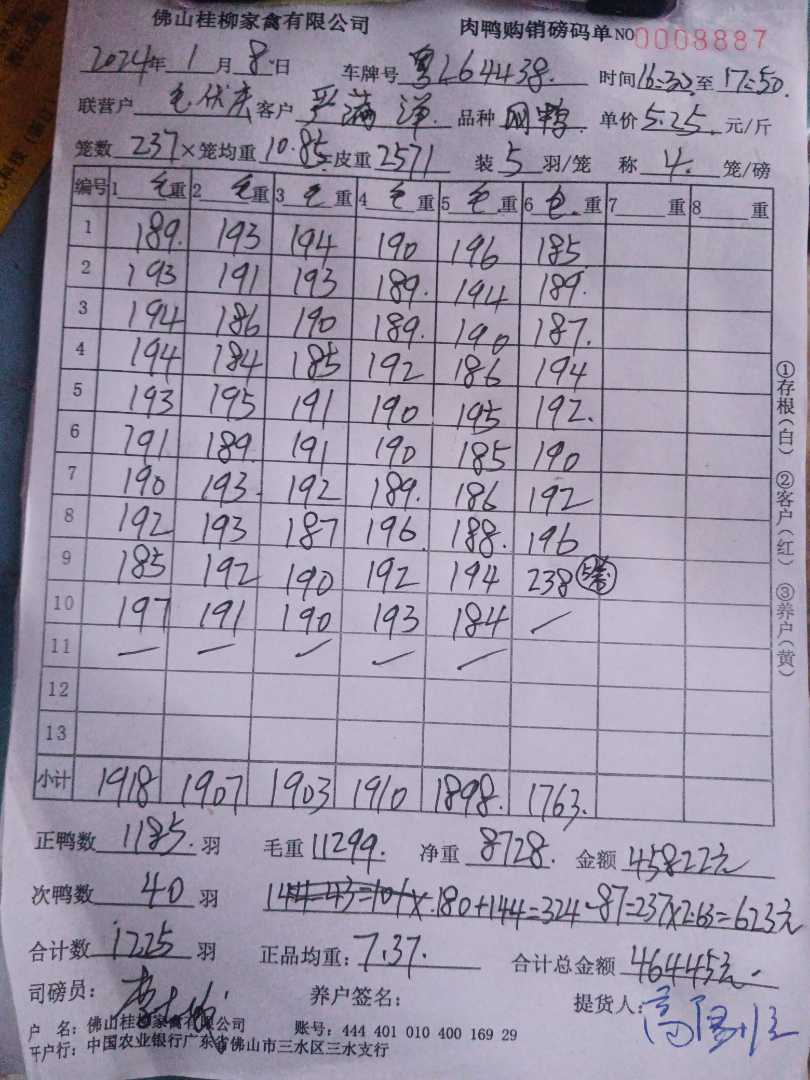 佛山桂柳家禽有限公司 肉鸭购销磅码单 NO 0008887
2024年 1月 8日 车牌号 粤L64438. 时间16:30至17:50.
联营户 客户 严满洋 品种 网鸭 单价 5.25 元/斤
笼数 237×笼均重 10.85=皮重2571 装 5 羽/笼 称 4. 笼/磅
编号 1 毛 重 2 毛 重 3 毛 重 4 毛 重 5 毛 重 6 毛 重 7 重 8 重
1 189. 193 194 190 196 185
2 193 191 193 189. 194 189.
3 194 186 190 189. 190 187.
4 194 184 185 192 186 194
5 193 195 191 190 195 192.
6 191 189 191 190 185 190
7 190 193. 192 189. 186 192
8 192 193 187 196. 188. 196
9 185 192 190 192 194 238
10 197 191 190 193 184 —
11 — — — — —
12
13
小计 1918 1907 1903 1910 1898. 1763.
正鸭数 1185. 羽 毛重 11299. 净重 8728. 金额 45822元
次鸭数 40 羽 144-43=101×.180+144=324-87=237×2.63=623元
合计数 1225 羽 正品均重: 7.37. 合计总金额 46445元.
司磅员: 养户签名: 提货人:
户 名: 佛山桂柳家禽有限公司 账号: 444 401 010 400 169 29
开户行: 中国农业银行广东省佛山市三水区三水支行
①存根(白) ②客户(红) ③养户(黄)